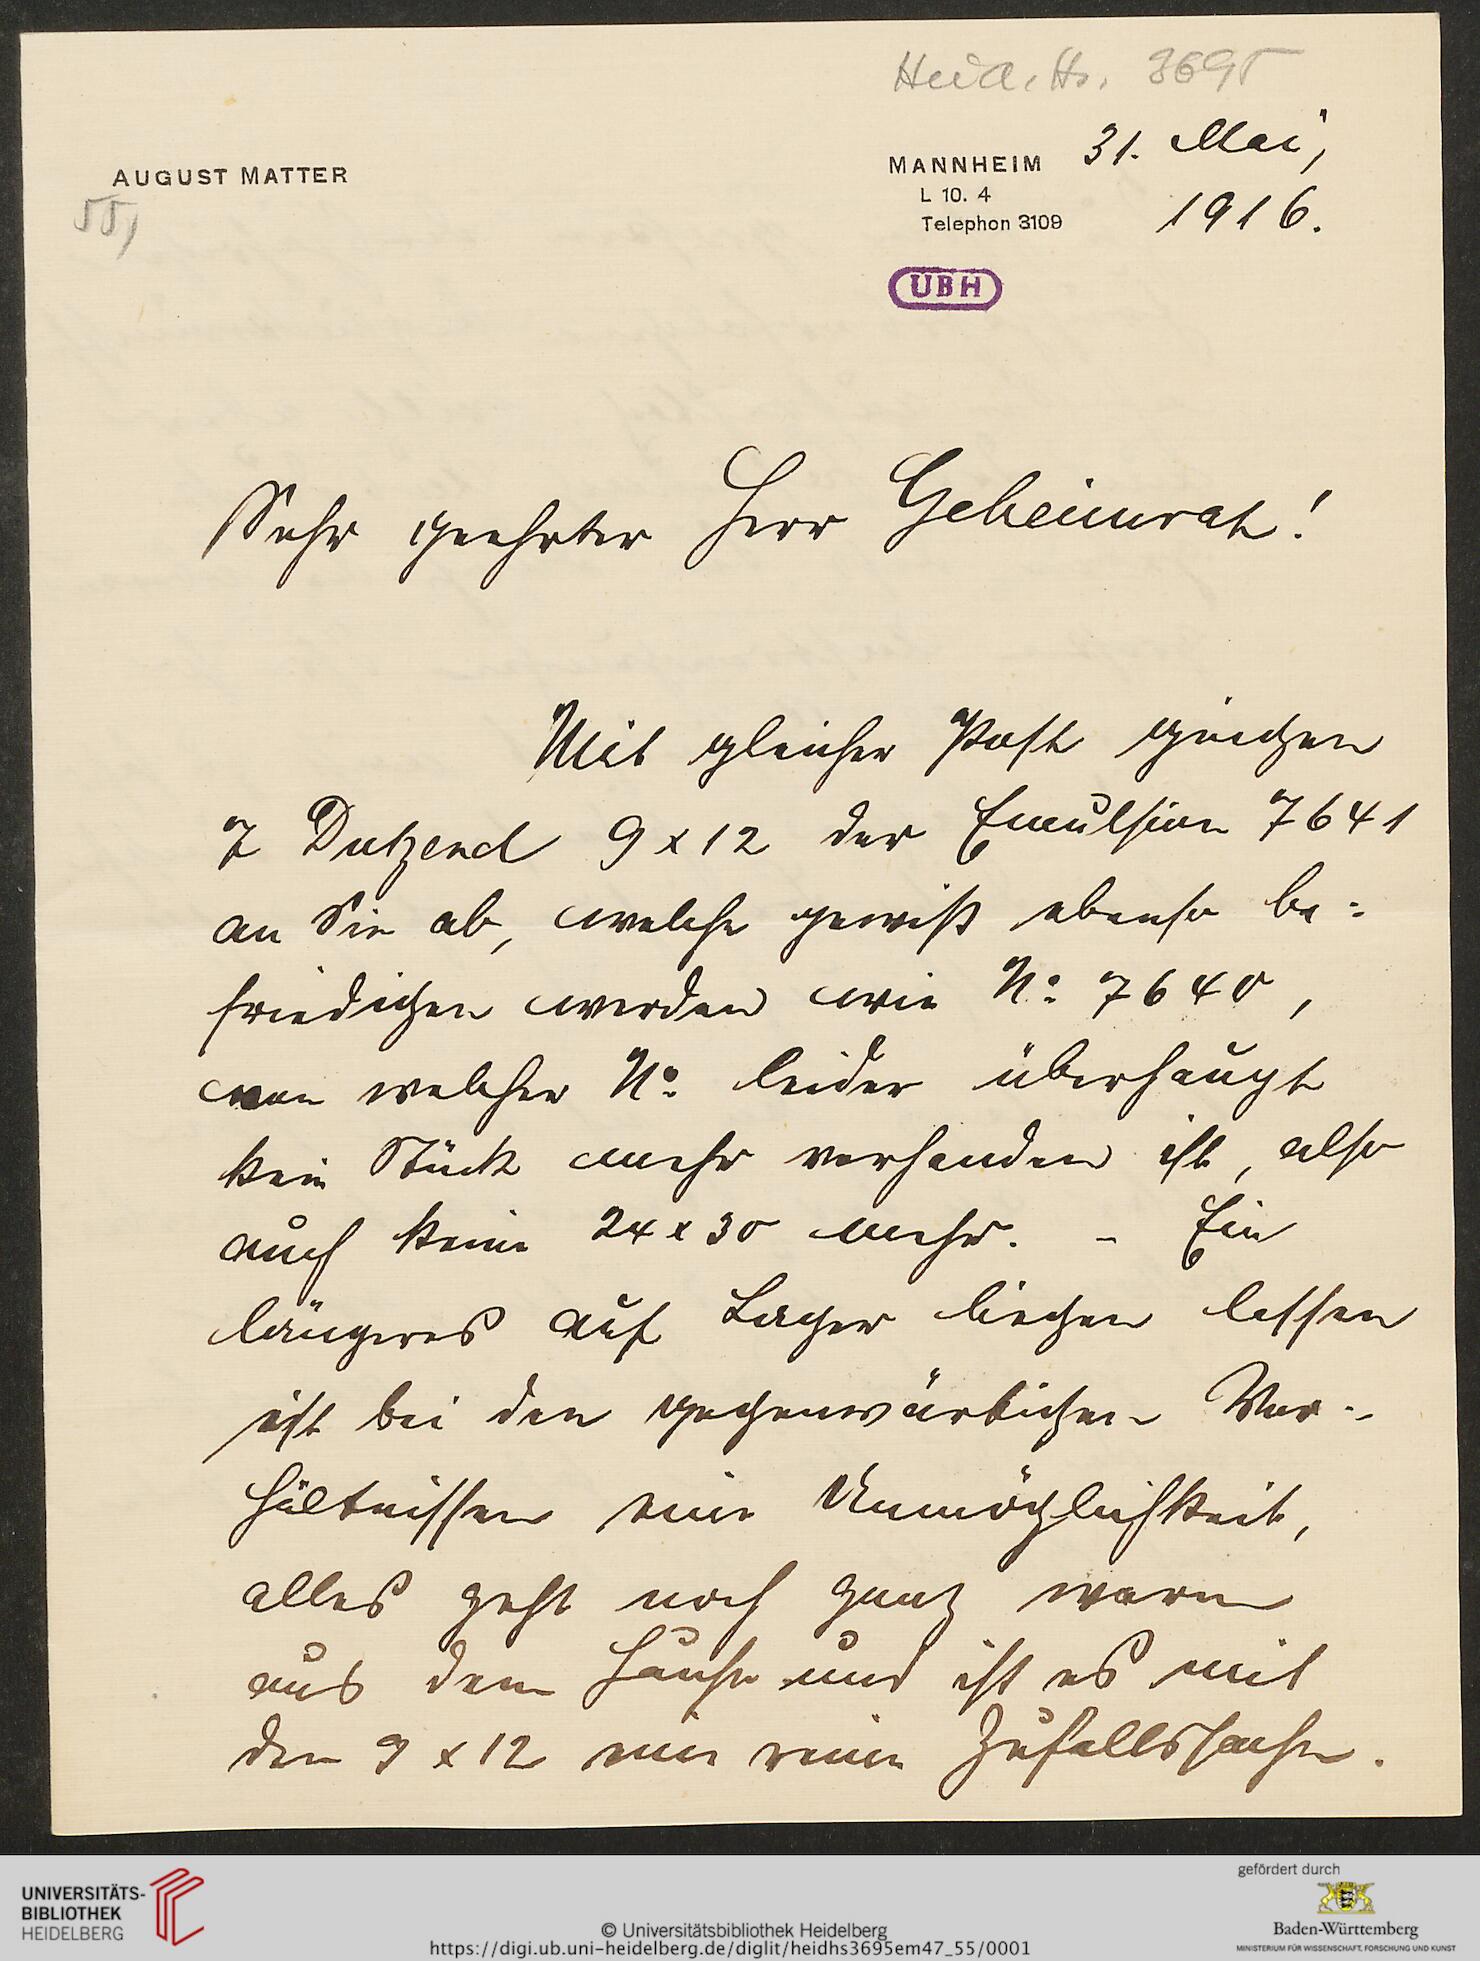 Heid. Hs. 3695
AUGUST MATTER
55,
MANNHEIM 31. Mai,
L 10. 4
Telephon 3109
1916.
UBH
Sehr geehrter Herr Geheimrat!
Mit gleicher Post gingen
7 Dutzend 9 x 12 der Emulsion 7641
an Sie ab, welche gewiß ebenso be-
friedigen werden wie No 7640,
von welcher No leider überhaupt
kein Stück mehr vorhanden ist, also
auch keine 24 x 30 mehr. - Ein
längeres auf Lager liegen lassen
ist bei den gegenwärtigen Ver-
hältnissen eine Unmöglichkeit,
alles geht noch ganz warm
aus dem Hause und ist es mit
den 9 x 12 eine reine Zufallssache.
UNIVERSITÄTS-
BIBLIOTHEK
HEIDELBERG
© Universitätsbibliothek Heidelberg
https://digi.ub.uni-heidelberg.de/diglit/heidhs3695em47_55/0001
gefördert durch
Baden-Württemberg
MINISTERIUM FÜR WISSENSCHAFT, FORSCHUNG UND KUNST